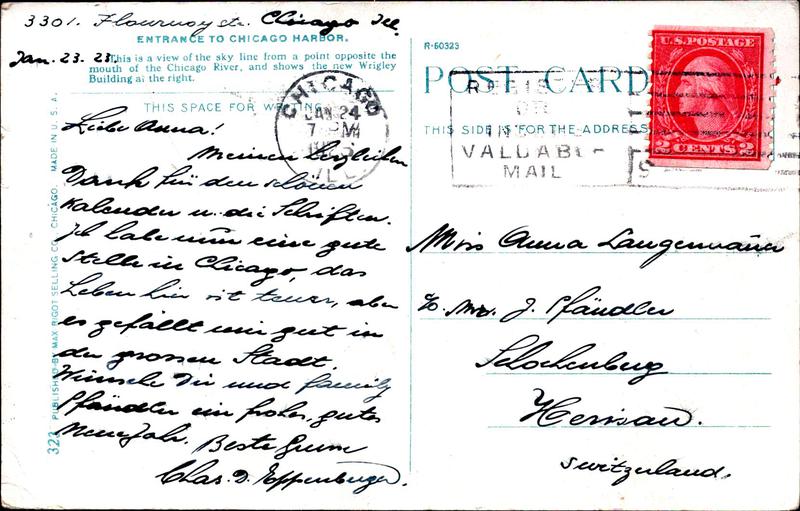 3301. Flournoy str. Chicago Ill.
ENTRANCE TO CHICAGO HARBOR.
Jan. 23. 23.
This is a view of the sky line from a point opposite the
mouth of the Chicago River, and shows the new Wrigley
Building at the right.
THIS SPACE FOR WRITING
Liebe Anna!
Meinen herzlichen
Dank für den schönen
Kalender u. die Schriften.
Ich habe nun eine gute
Stelle in Chicago, das
Leben hier ist teuer, aber
es gefällt mir gut in
der grossen Stadt.
Wünsche Dir und family
Pfändler ein frohes, gutes
Neue Jahr. Beste Grüsse
Chas. D. Eppenberger.
323 PUBLISHED BY MAX RIGOT SELLING CO., CHICAGO. MADE IN U. S. A.
R-60323
POST CARD
THIS SIDE IS FOR THE ADDRESS
CHICAGO
JAN 24
7 PM
ILL
OR
VALUABLE
MAIL
U.S. POSTAGE
2 CENTS 2
Miss Anna Langenauer
c/o. Mr. J. Pfändler
Herisau.
Switzerland.